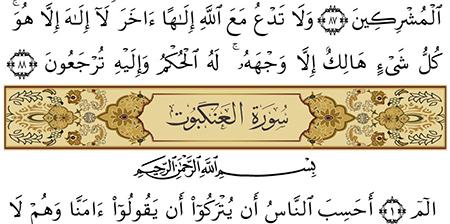 ٱلْمُشْرِكِينَ ﴿٨٧﴾ وَلَا تَدْعُ مَعَ ٱللَّهِ إِلَـٰهًا ءَاخَرَ لَآ إِلَـٰهَ إِلَّا هُوَ ۚ
كُلُّ شَىْءٍ هَالِكٌ إِلَّا وَجْهَهُۥ ۚ لَهُ ٱلْحُكْمُ وَإِلَيْهِ تُرْجَعُونَ ﴿٨٨﴾
سورة العنكبوت
بِسْمِ ٱللَّهِ ٱلرَّحْمَـٰنِ ٱلرَّحِيمِ
الٓمٓ ﴿١﴾ أَحَسِبَ ٱلنَّاسُ أَن يُتْرَكُوٓا۟ أَن يَقُولُوٓا۟ ءَامَنَّا وَهُمْ لَا